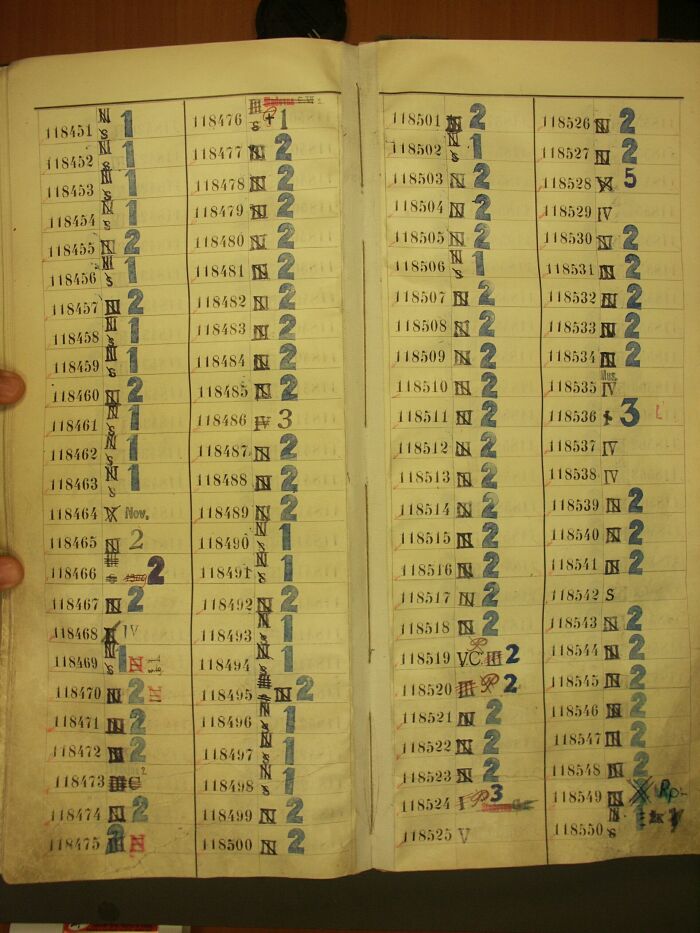 118451 N S 1
118452 N S 1
118453 N S 1
118454 N S 1
118455 N 2
118456 N S 1
118457 N 2
118458 N S 1
118459 N S 1
118460 N 2
118461 N S 1
118462 N S 1
118463 N S 1
118464 V Nov.
118465 N 2
118466 2
118467 N 2
118468 IV
118469 N S 1 N
118470 N 2 N
118471 N 2
118472 N 2
118473 C
118474 N 2
118475 2 N
118476 III S + 1
118477 N 2
118478 N 2
118479 N 2
118480 N 2
118481 N 2
118482 N 2
118483 N 2
118484 N 2
118485 N 2
118486 IV 3
118487 N 2
118488 N 2
118489 N 2
118490 N S 1
118491 N S 1
118492 N 2
118493 N S 1
118494 N S 1
118495 N 2
118496 N S 1
118497 N S 1
118498 N S 1
118499 N 2
118500 N 2
118501 N 2
118502 N S 1
118503 N 2
118504 N 2
118505 N 2
118506 N S 1
118507 N 2
118508 N 2
118509 N 2
118510 N 2
118511 N 2
118512 N 2
118513 N 2
118514 N 2
118515 N 2
118516 N 2
118517 N 2
118518 N 2
118519 V.C. III P 2
118520 III P 2
118521 N 2
118522 N 2
118523 N 2
118524 I P 3
118525 V
118526 N 2
118527 N 2
118528 V 5
118529 IV
118530 N 2
118531 N 2
118532 N 2
118533 N 2
118534 N 2
118535 Mus. IV
118536 + 3 L
118537 IV
118538 IV
118539 N 2
118540 N 2
118541 N 2
118542 S
118543 N 2
118544 N 2
118545 N 2
118546 N 2
118547 N 2
118548 N 2
118549 X Rp.
118550 N S 1